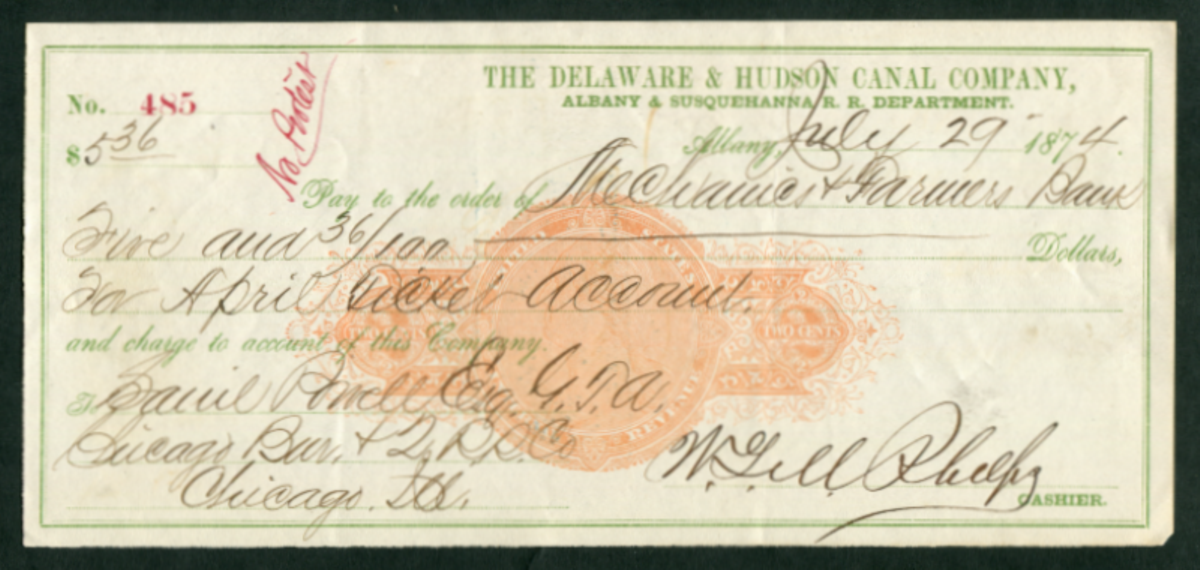 THE DELAWARE & HUDSON CANAL COMPANY,
ALBANY & SUSQUEHANNA R. R. DEPARTMENT.
No. 485
No Protest
$5 36
Albany, July 29 1874.
Pay to the order of Mechanics & Farmers Bank
Five and 36/100 Dollars,
For April Ticket Account.
and charge to account of this Company.
To Powell, Esq. G. T. A.
Chicago Bur. & Q. R. R. Co
Chicago. Ill.
UNITED STATES
TWO CENTS
REVENUE
Phelps
CASHIER.